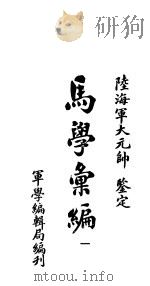 研狗
陸海軍大元帥 鑒定
馬學彙編 一
軍學編輯局編刋
mtoou.info